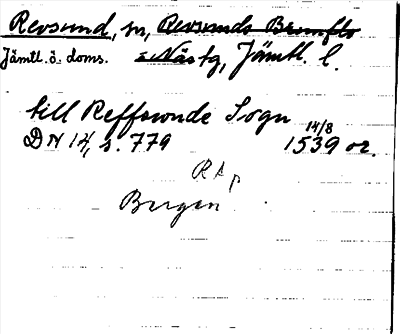 Revsund, sn, Revsunds Brunflo
Jämtl. ö. doms. o Näs tg, Jämtl. l.
till Reffswnde Sogn
DN 14, s. 779 14/8 1539 or.
RAp
Bergen